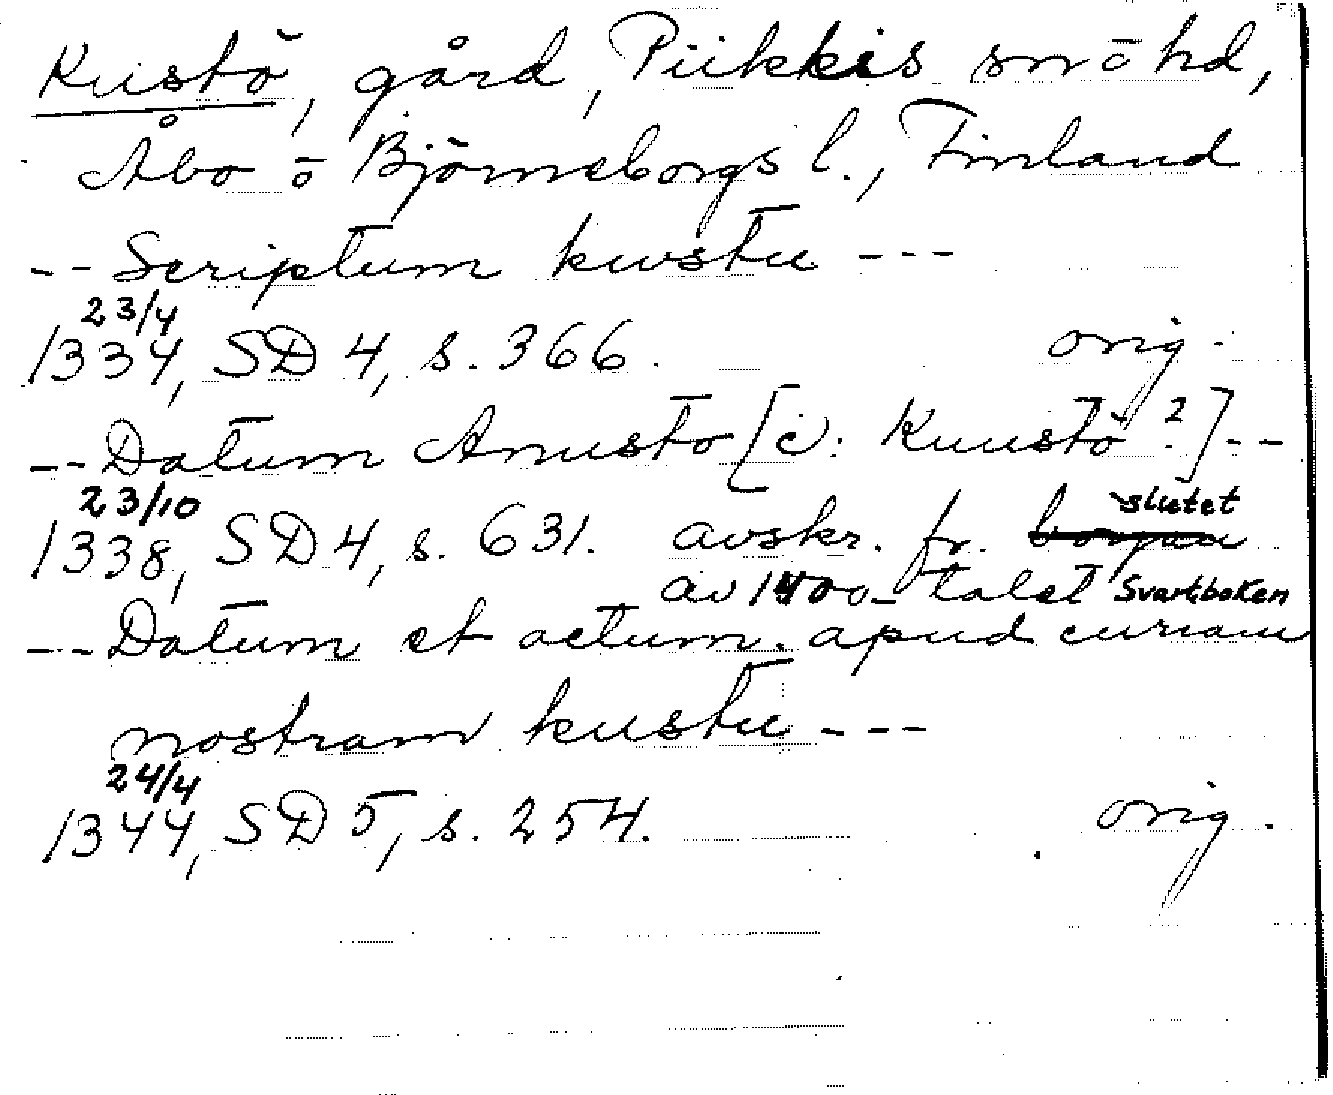 Kustö, gård, Piikkis sn o hd,
Åbo o Björneborgs l., Finland
-- Scriptum kwstu ---
23/4
1334, SD 4, s. 366. orig.
-- Datum Anusto [ɔ: Kuustö ?] --
23/10 slutet
1338, SD 4, s. 631. avskr. fr. början
av 1400-talet Svartboken
--- Datum et actum. apud curiam
nostram kustu ---
24/4
1344, SD 5, s. 254. orig.